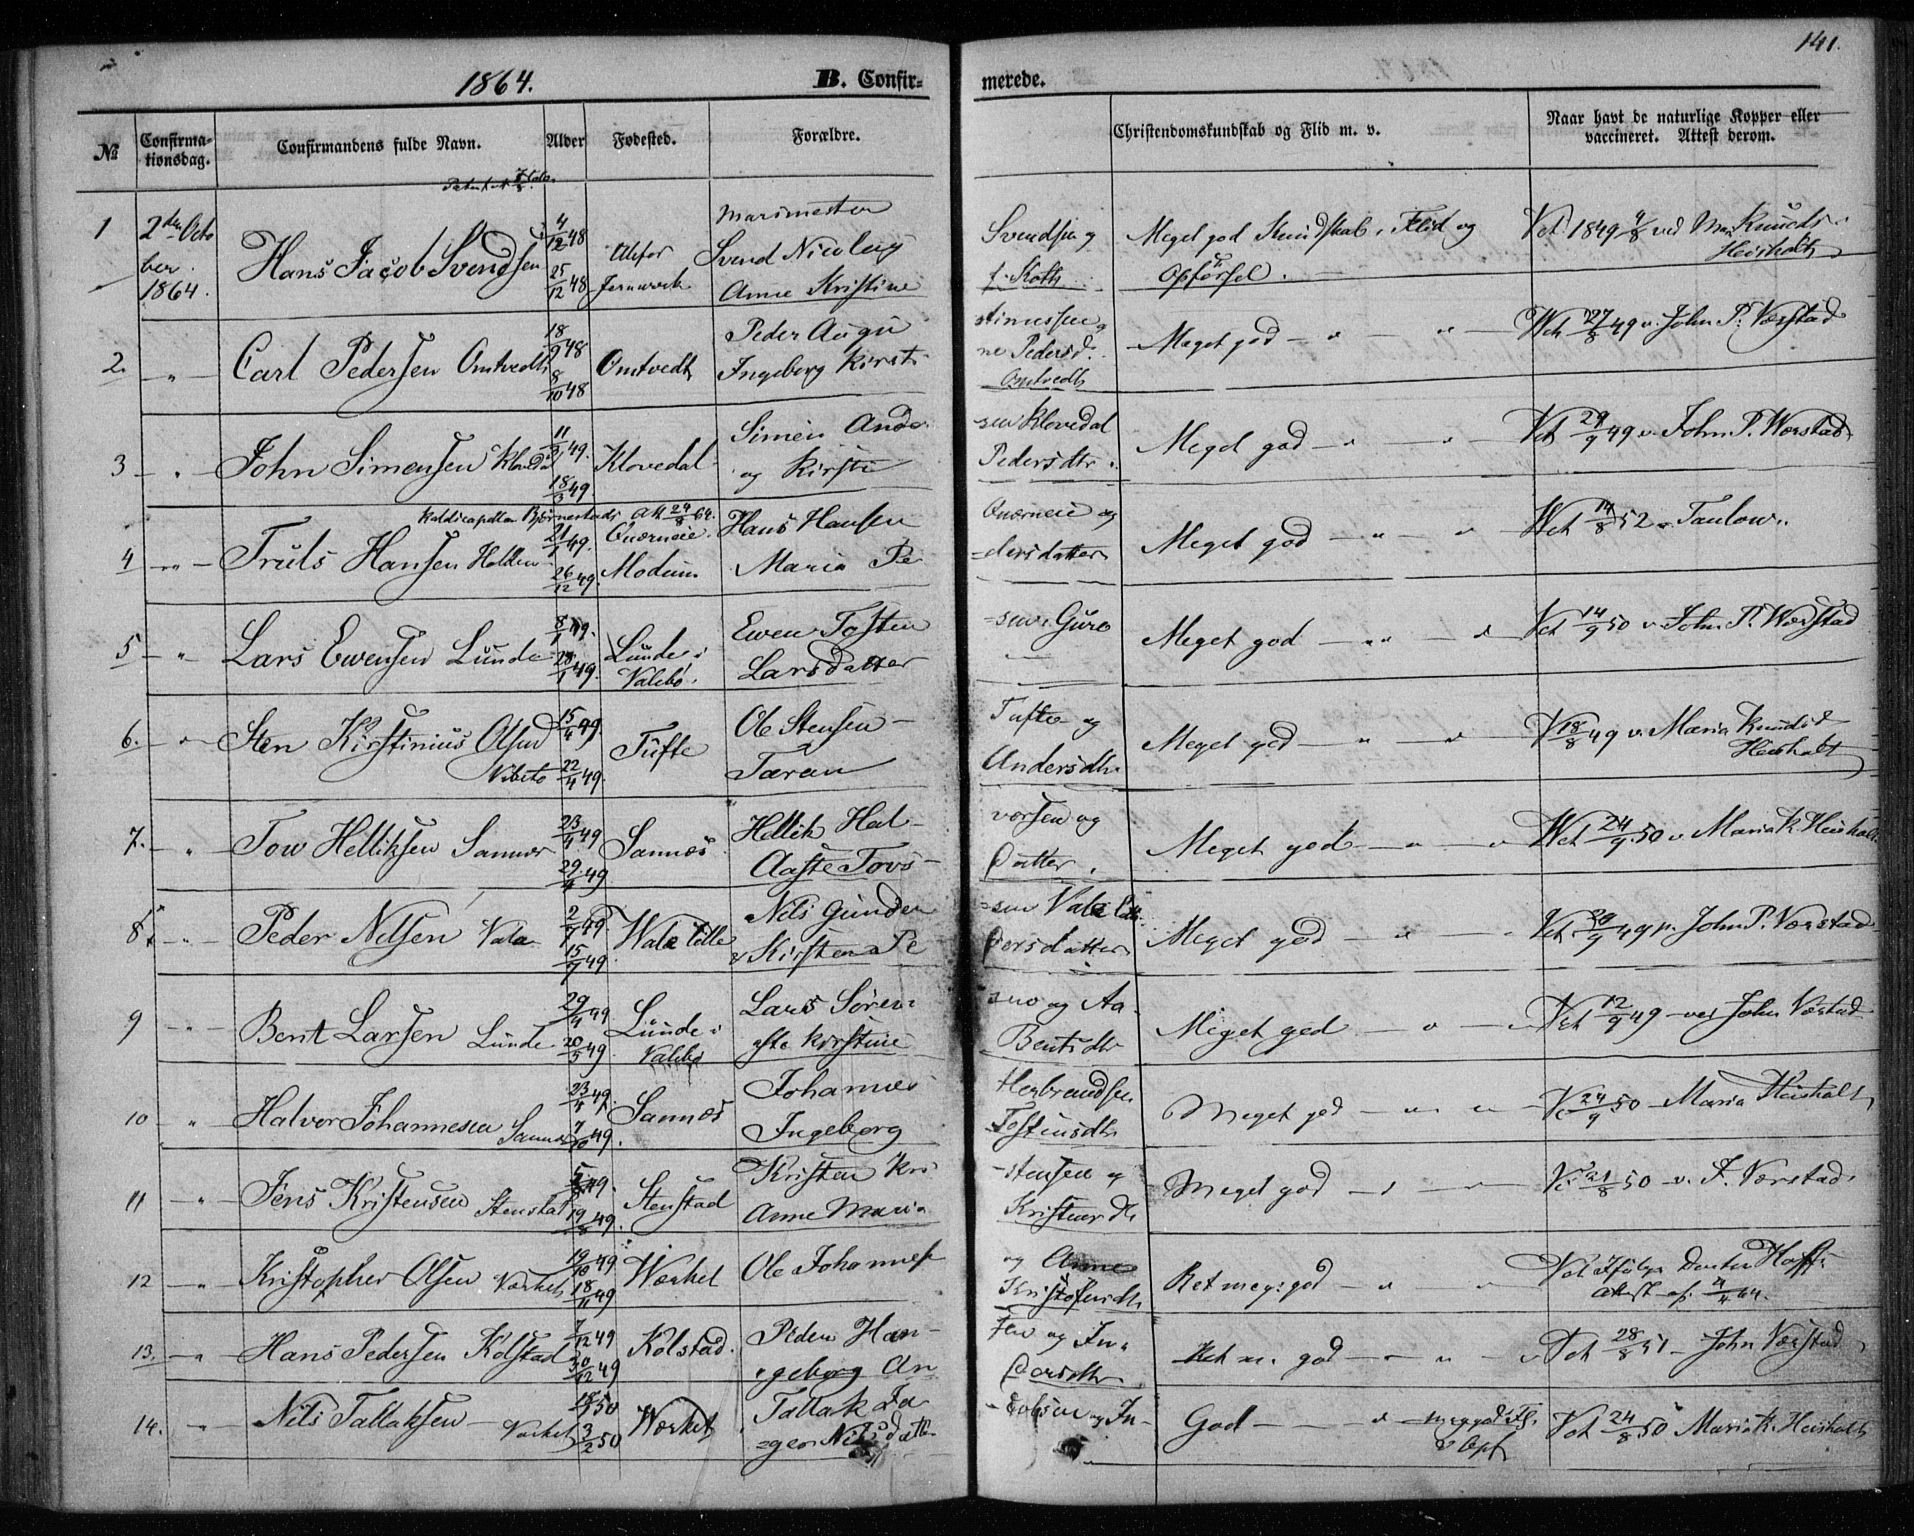 141.
1864.
B. Confirmerede.
№ Confirmationsdag. Confirmandens fulde Navn. Alder Fødested. Forældre. Christendomskundskab og Flid m. v. Naar havt de naturlige Kopper eller vaccineret. Attest derom.
1 2den October 1864. Hans Jacob Svendsen 4/12 48 25/12 48 Ulefos Jernværk Marsmester Svend Nicolay Svendsen og Anne Kristine Meget god Kundskab, Flid og Opførsel. Vet 1849 4/8 ved Mar. Knudsd. Heisholt
2. " Carl Pedersen Omtvedt 18/9 48 8/10 48 Omtvedt Peder Augustinussen og Ingeborg Kirstine Pedersd. Omtvedt Meget god " " Vet 27/8 49 v. John P. Værstad
3 " John Simensen Klovedal 11/3 49. 18/3 49. Klovedal Simen Andersen Klovedal og Kirsti Pedersdtr. Meget god " " Vet 29/9 49 v. John P. Værstad
4 " Truls Hansen Holden 21/1 49. 26/12 49. Modum Hans Hansen og Maria Pedersdatter Meget god " " Vet 14/8 52 v. Taulow.
5 " Lars Ewensen Lunde 8/1 49. 28/1 49. Lunde i Valebø. Ewen Tostensen Guro Larsdatter Meget god " " Vet 14/9 50 v. John P. Værstad
6. " Sten Kirstinius Olsen Vibeto 15/4 49. 22/4 49. Tufte Ole Stensen Tufte og Taran Andersdtr. Meget god " " V 18/8 49 v. Maria Knudsd. Heisholt
7. " Tow Helliksen Sannes 23/4 49 29/4 49 Sannes. Hellik Halvorsen og Aaste Tovsdatter. Meget god " " Vet 24/9 50 v. Maria K. Heisholt
8 " Peder Nilsen Vala 15/7 49. Wala Nils Gundersen Vala og Kirsten Pedersdatter Meget god " " Vet 9 49 v. John P. Værstad
9 " Bent Larsen Lunde 29/4 49 20/5 49. Lunde i Valebø Lars Sørensen og Aaste Kirstine Bentsdtr. Meget god " " Vet 12/9 49 ved John Værstad
10 " Halvor Johannesen Sannes 49. Sannes Johannes Herbrandsen Ingeborg Tostensdtr. Meget god " " V 24/9 50 Maria Heisholt
11 " Jens Kristensen Stenstad 49. 19/8 49. Stenstad Kristen Kristensen og Anne Maria Kristensdtr. Meget god " " V 21/8 50 v. J. Værstad
12 " Kristopher Olsen Værket 19/10 49 18/11 49 Wærket Ole Johannes og Anne Kristofersdtr. Ret meg. god " " Vet ifølge Doctor Hoffs Attest af 4/4 64.
13. " Hans Pedersen Kolstad 7/12 49 30/12 49 Kolstad. Peder Hansen og Ingeborg Andersdtr. Ret m. god " " Vet 28/8 51 John Værstad
14. " Nils Tallaksen Værket 50 3/2 50 Wærket Tallak Jacobsen og Inger Nilsdatter God " meg god Fl. og Opf. Vet 24/8 50 Maria K. Heisholt